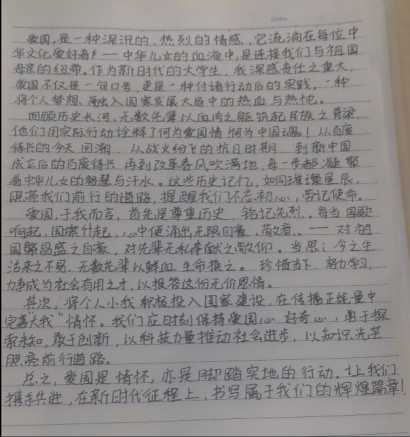 爱国,是一种深沉的、热烈的情感,它流淌在每位中
华文化爱好者——中华儿女的血液中,是连接我们与祖国
母亲的纽带。作为新时代的大学生,我深感责任之重大,
爱国不仅是一句口号,更是一种付诸行动的实践,一种
将个人梦想融入国家发展大局中的热血与热忱。
回顾历史长河,无数先辈以血肉之躯筑起民族之脊梁,
他们用实际行动诠释了何为爱国情 何为中国魂!从
的今天回溯 从战火纷飞的抗日时期 到新中国
成立后的百废待兴 再到改革春风吹满地,每一步都凝聚
着中华儿女的智慧与汗水。这些历史记忆,如同璀璨星辰,
照亮我们前行的道路,提醒我们不忘初心,牢记使命。
爱国,于我而言,首先是尊重历史 铭记先烈,每当国歌
响起,国旗升起,心中便涌出无限自豪、敬 —— 对祖
国繁荣昌盛之自豪,对先辈无私奉献之敬仰。当思:今之生
活来之不易,无数先辈以鲜血、生命换之。珍惜当下 努力学习,
力争成为社会有用之才,以报答这份无价恩情。
其次,将个人小我积极投入国家建设,在传播正能量中
完善"大我"情怀。我们应时刻保持爱国心 好奇心,勇于探
索求知,敢于创新,以科技力量推动社会进步,以知识光芒
照亮前行道路。
总之,爱国是情怀,亦是脚踏实地的行动,让我们
携手共进,在新时代征程上,书写属于我们的辉煌篇章!